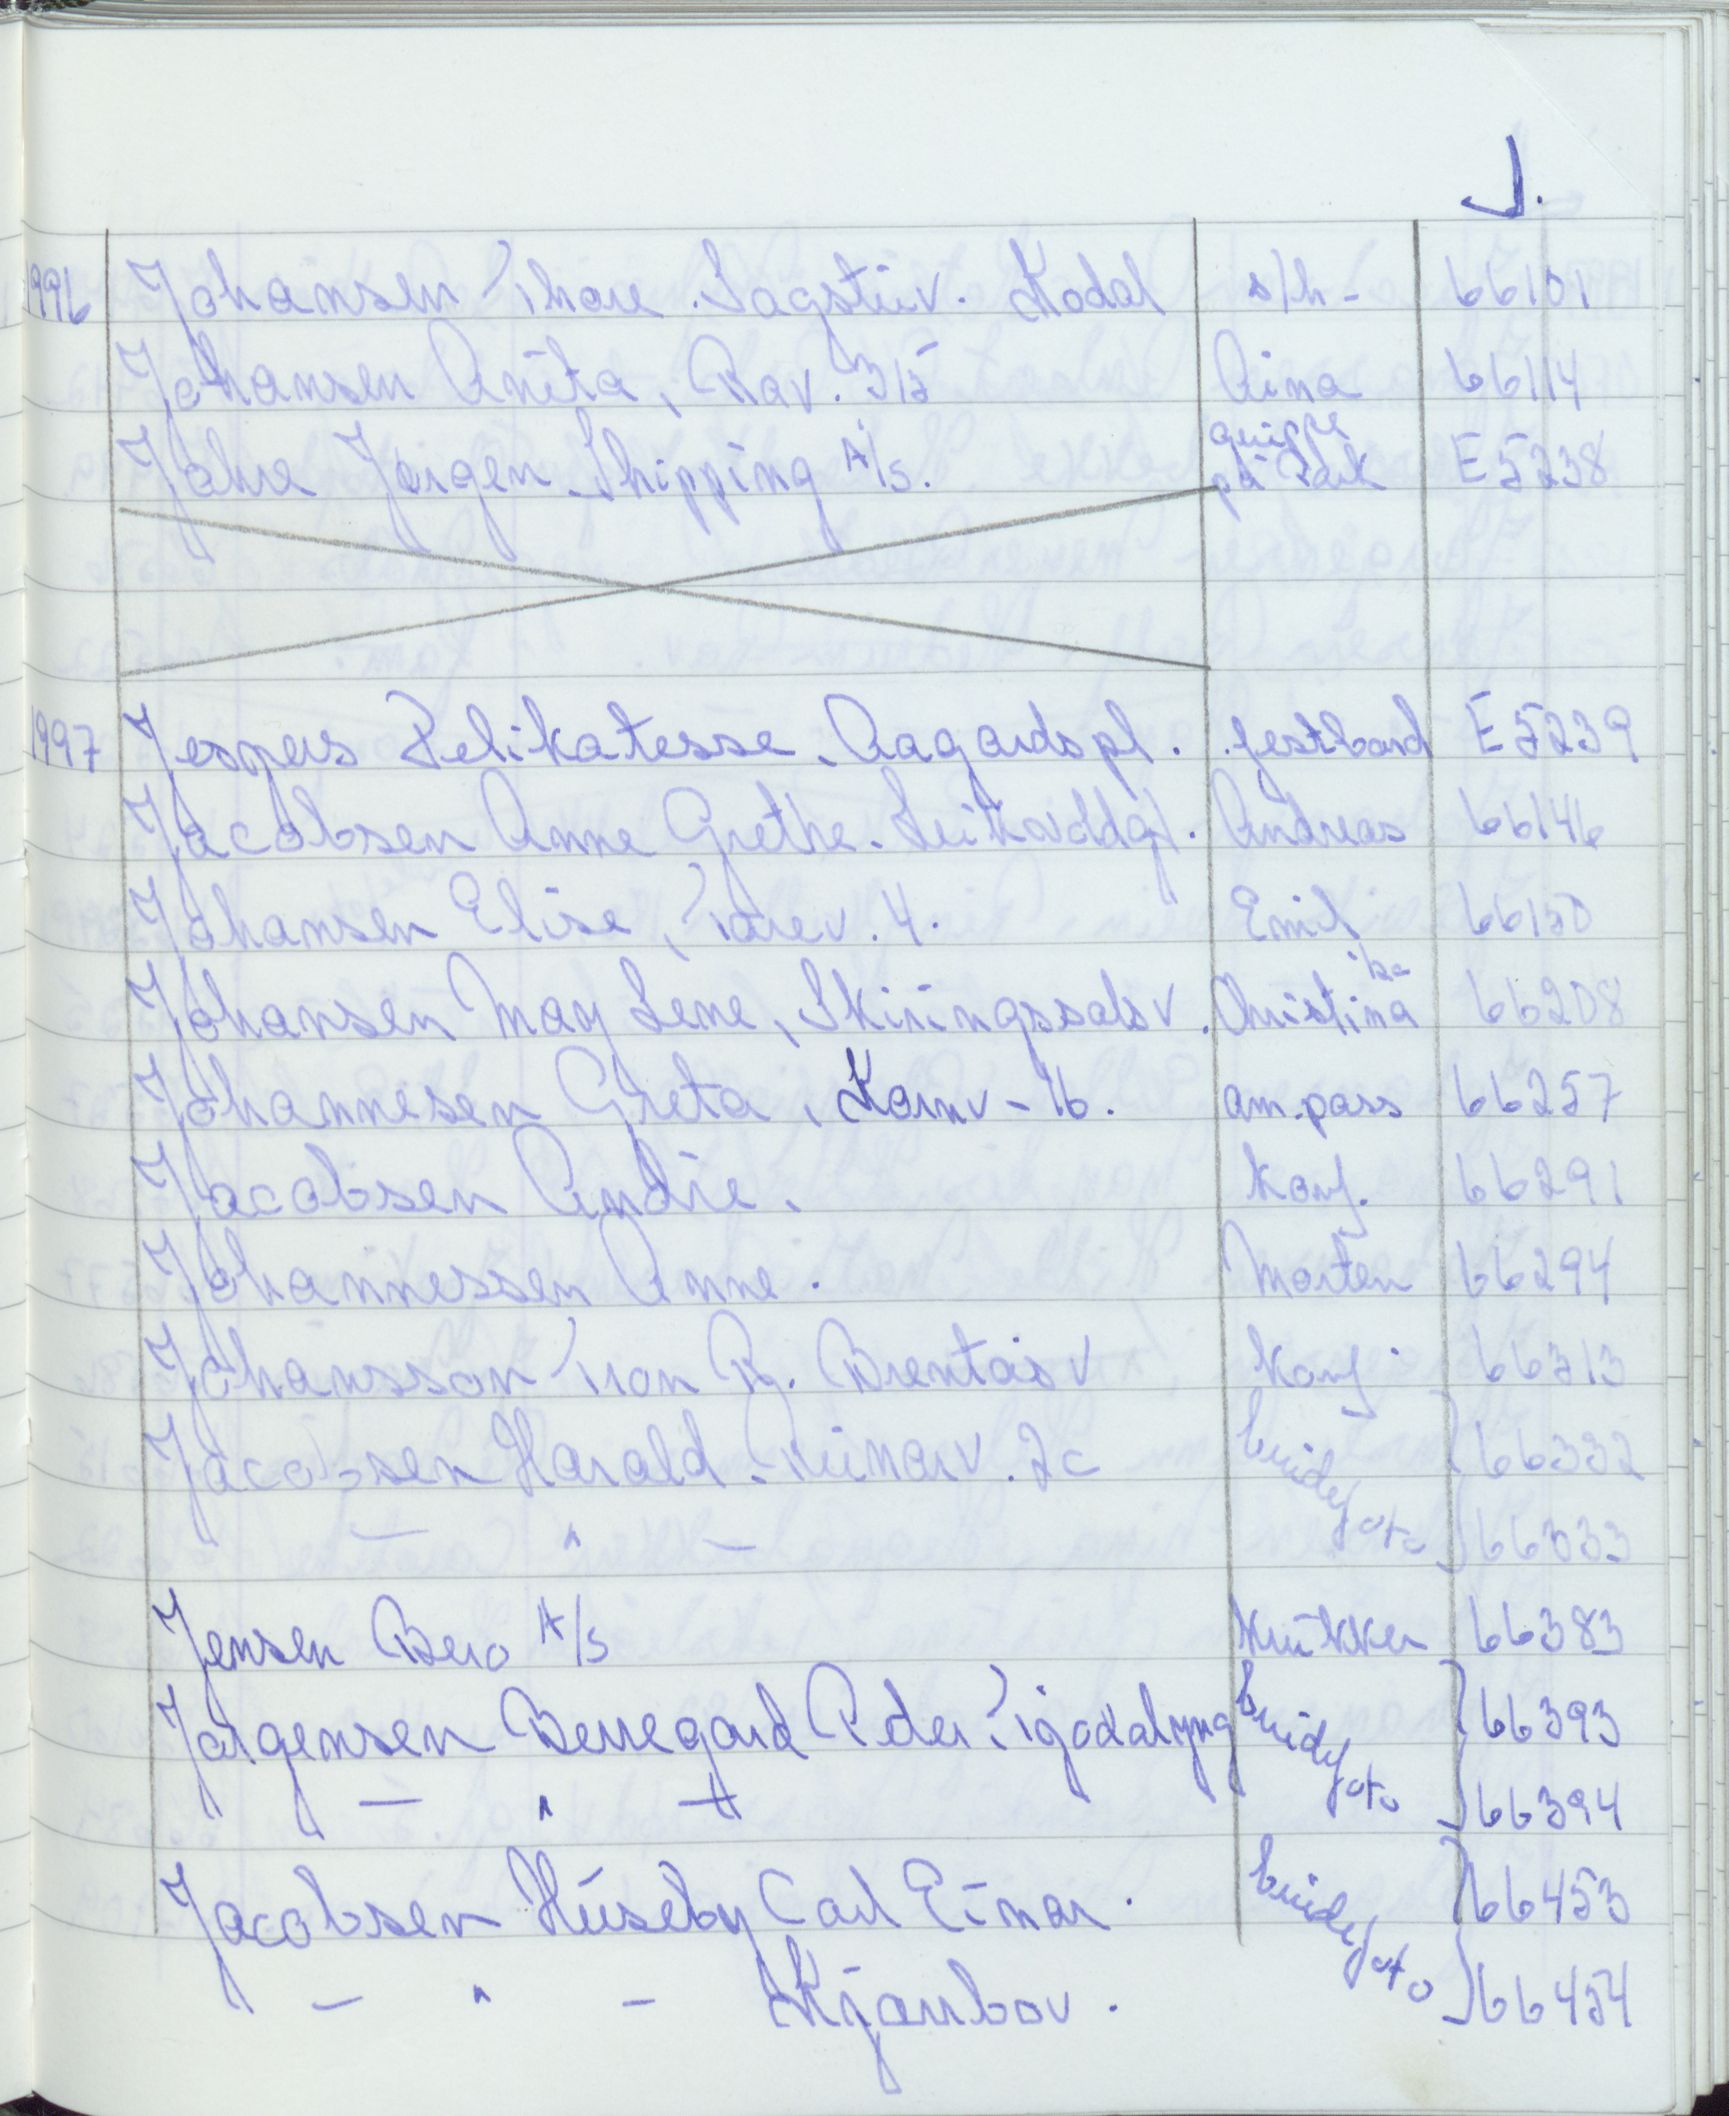 J.
1996 Johansen Thore. Sagstuv. Kodal s/h- 66101
Johansen Anita, Rav. 315 Aina 66114
Jahre Jørgen Shipping A/S. gruppe på Park E5238
1997 Jespers Delikatesse. Aagaards pl. festbord E5239
Jacobsen Anne Grethe. Andreas 66146
Johansen Elise, Torev. 4. Emil 66150
Johansen May Lene, Skiringssalsv. Christina 66208
Johannesen Greta, Kornv-16. am.pass 66257
Jacobsen André. konf. 66291
Johannessen Anne. Morten 66294
Johansson Tron R. konf. 66313
Jacobsen Harald. Runarv. 2c brudefoto 66332
— " — 66333
Jensen Bero A/S krukker 66383
Jørgensen Berregard Peder. brudefoto 66393
— " — 66394
Jacobsen Huseby Carl Einar. brudefoto 66453
— " — Kjærbov. 66454